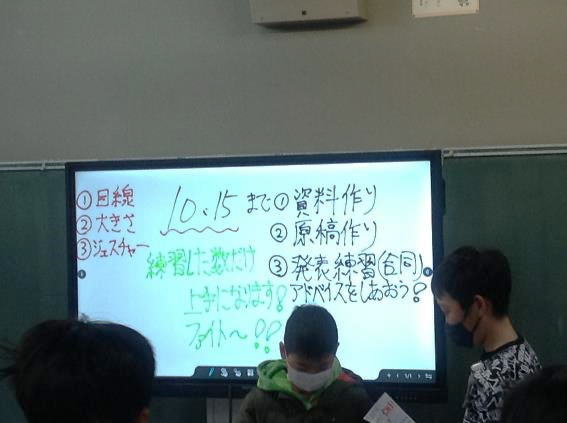 ①目線
②大きさ
③ジェスチャー
10:15 まで
①資料作り
②原稿作り
③発表練習(合同)
アドバイスをしあおう!
練習した数だけ
上手になります!
ファイト〜!!